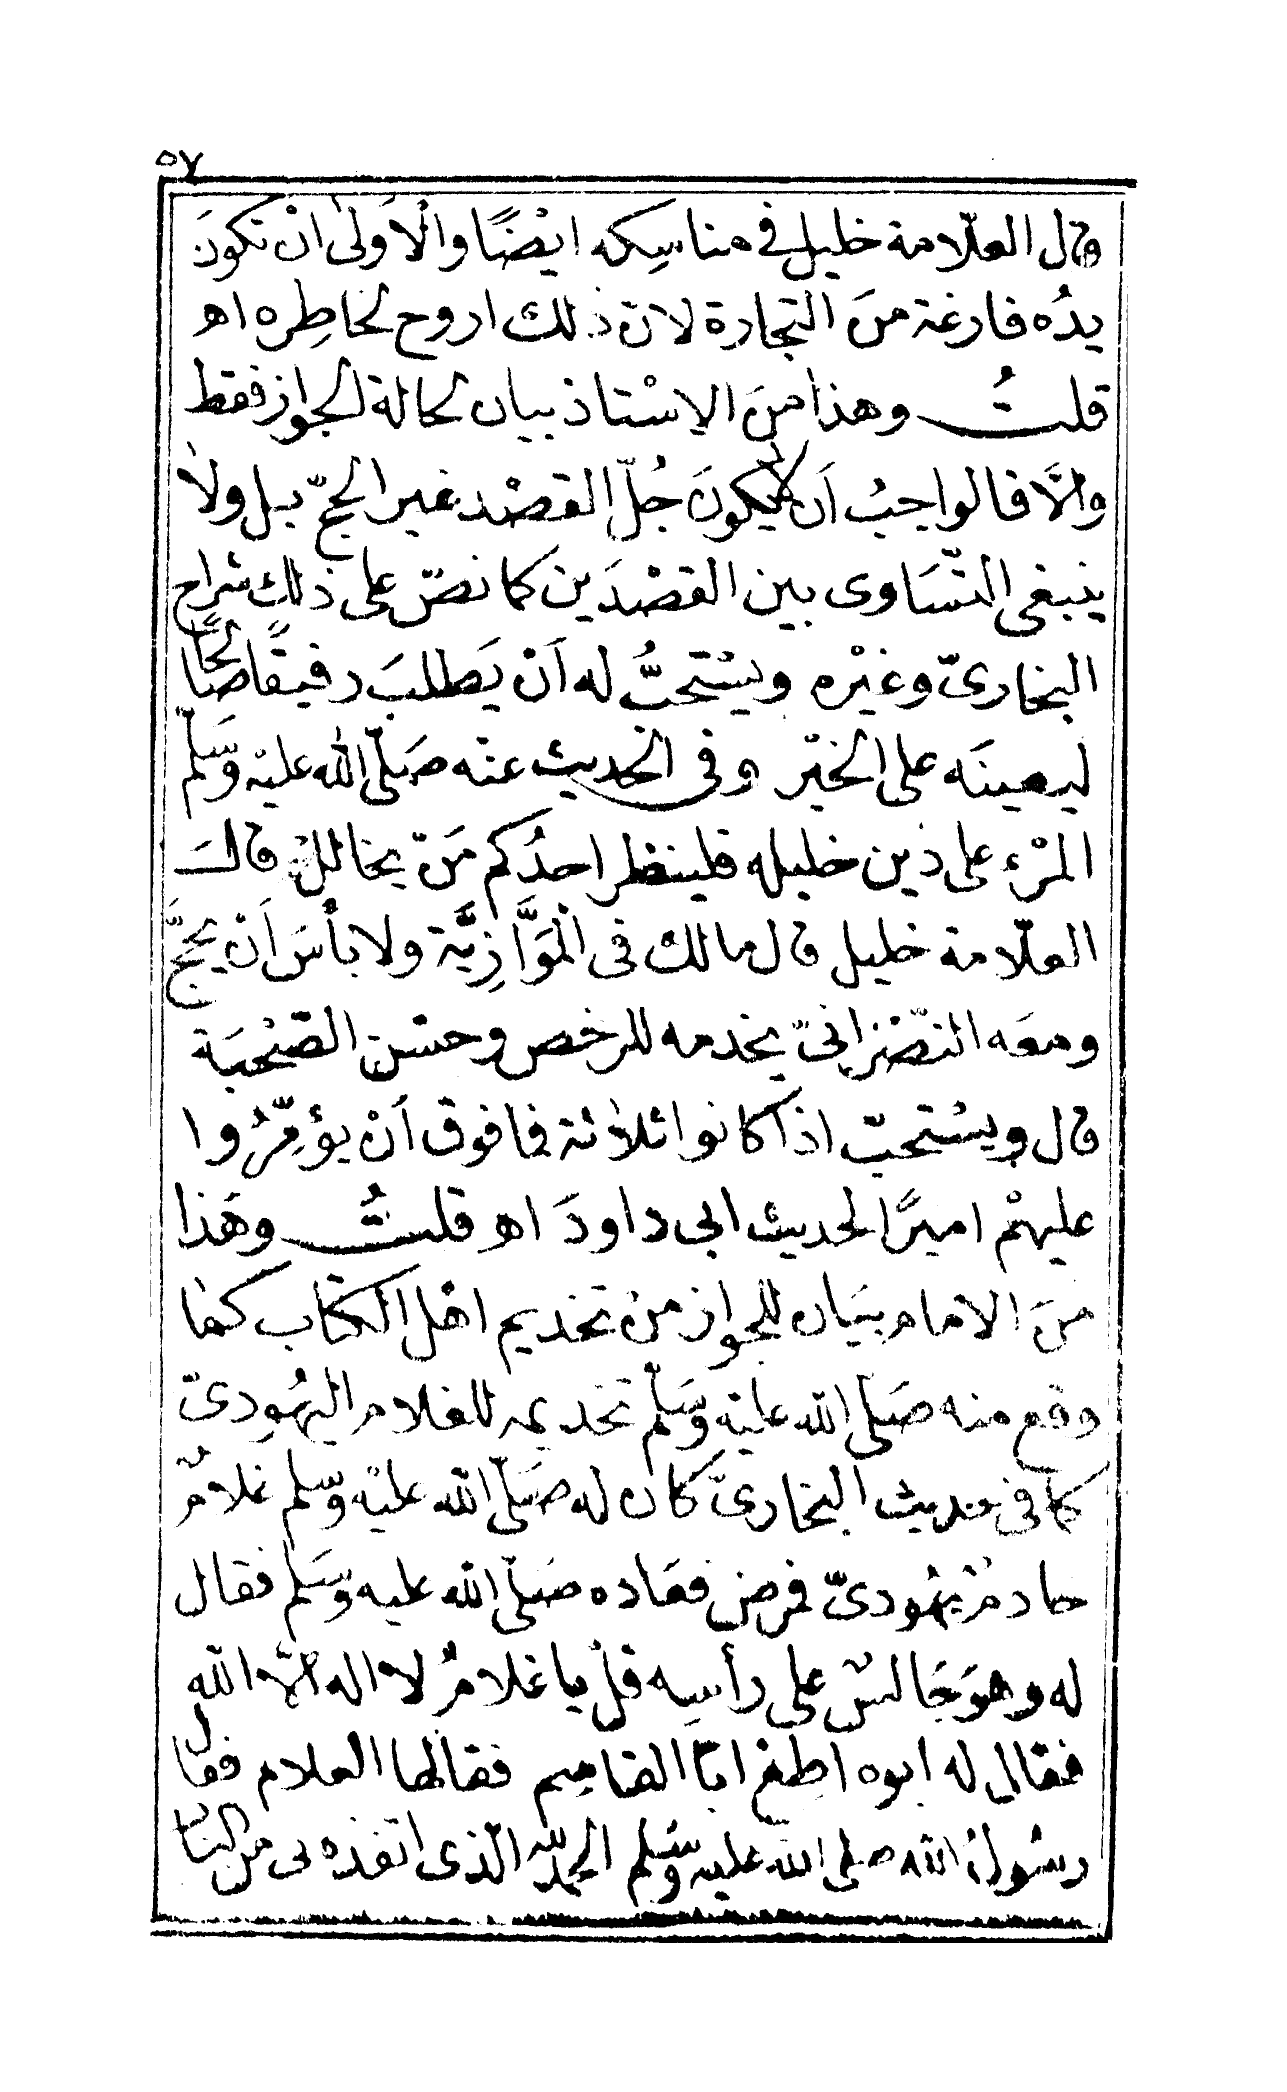 ٥٧
قال العلّامة خليل في مناسِكه ايْضًا والْأَولى انْ تكونَ
يدُه فارغة منَ التجارة لان ذلك اروح لخاطِره اهـ
قلتُ وهذا منَ الاسْتاذ بيان لحالة الجواز فقط
والَّا فالواجبُ اَن لا يكونَ جُلّ القصْد غير الحجّ بل ولا
ينبغى التّسَاوى بين القصْدَين كما نصّ على ذلك شراح
البخارىّ وغيْره ويسْتحبُّ له اَنْ يَطلبَ رفيقًا صالحًا
ليعينَه على الخيْر وفى الحديث عنْه صَلّى الله عليْه وَسَلّم
المرْء على دين خليله فلينظر احدُكم مَنْ يخالل قال
العلّامة خليل قال مالك فى الْمَوَّازِيَّة ولا بأْسَ اَنْ يَحجَّ
ومعَه النصْرانىّ يخدمه للرخص وحسْن الصّحْبَة
قال ويسْتحبّ اذا كانوا ثلاثة فما فوق اَنْ يؤمِّرُوا
عليهمْ اميرًا لحديث ابى داودَ اهـ قلتُ وهَذا
منَ الامام بيَان للجواز من تخديم اهْل الكتَاب كمَا
وقع منه صَلى الله عليْه وَسَلّم تخديمه للغلام اليهُودىّ
كما فى حديث البخارىّ كان له صَلّى الله عليْه وسّلم غلامٌ
خادمٌ يهُودىّ فمرض فعَاده صَلّى الله عليه وسَلّم فقال
له وهوَ جَالسٌ على رأسِه قلْ يا غلامُ لا اله الّا الله
فقال له ابوه اطِعْ ابَا القاسِم فقالها الغلام فقال
رسُولُ الله صلى الله عليْه وسَّلم الحمْد لله الّذى انقذه بى من النَّار